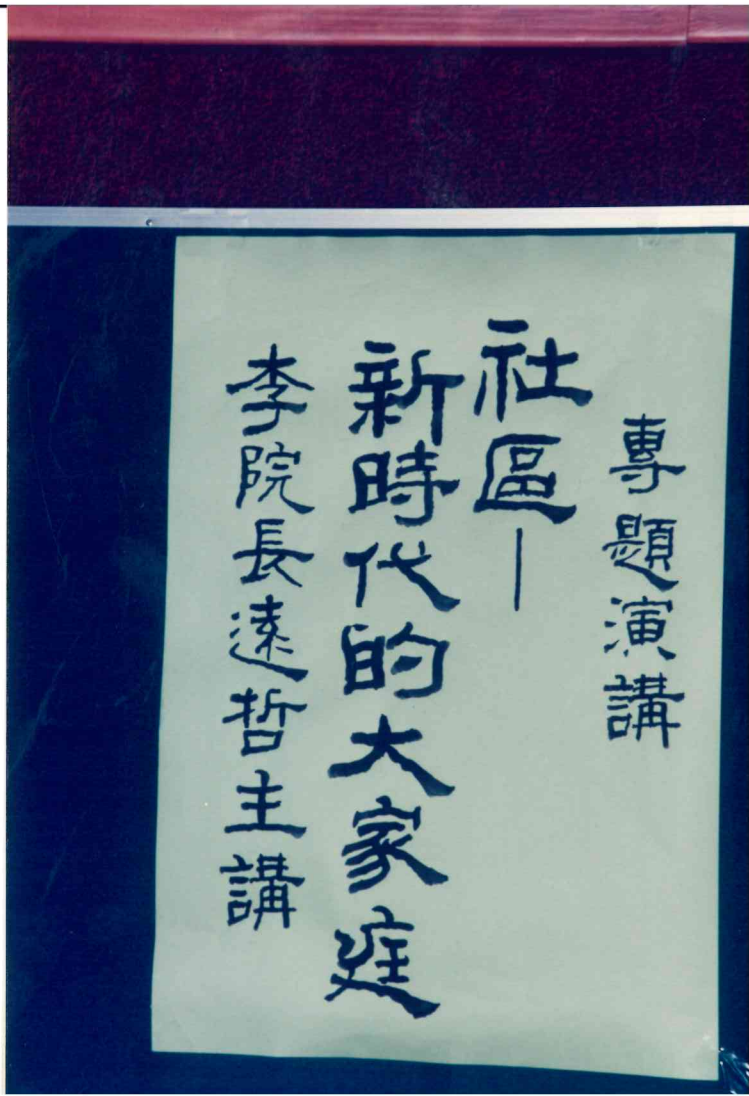 專題演講
社區—
新時代的大家庭
李院長遠哲主講